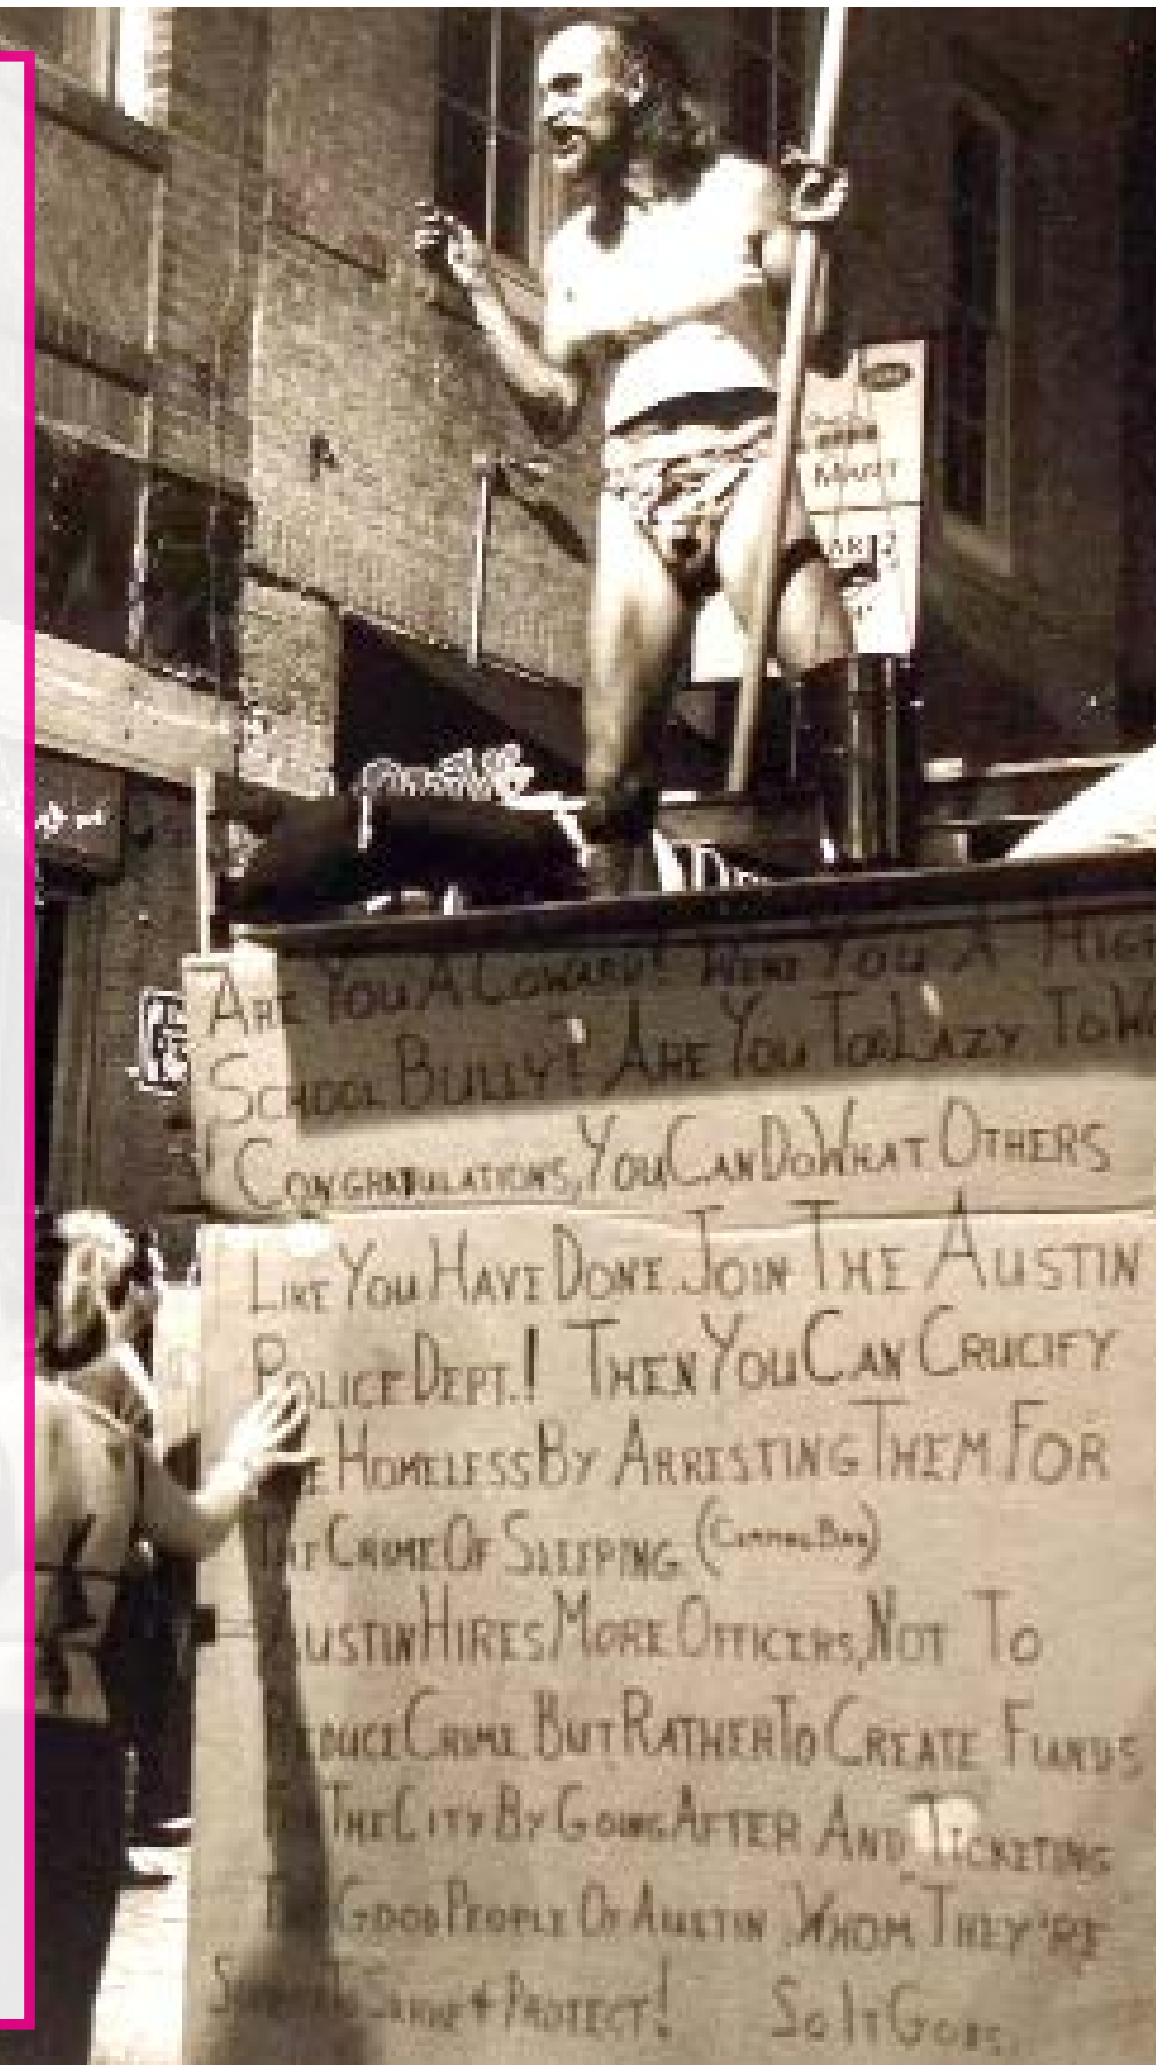 ARE YOU A COWARD? WERE YOU A HIGH
SCHOOL BULLY? ARE YOU TOO LAZY TO
CONGRATULATIONS, YOU CAN DO WHAT OTHERS
LIKE YOU HAVE DONE. JOIN THE AUSTIN
POLICE DEPT.! THEN YOU CAN CRUCIFY
HOMELESS BY ARRESTING THEM FOR
CRIME OF SLEEPING.
AUSTIN HIRES MORE OFFICERS, NOT TO
REDUCE CRIME BUT RATHER TO CREATE FUNDS
THE CITY BY GOING AFTER AND TICKETING
GOOD PEOPLE OF AUSTIN, WHOM THEY'RE
SERVE + PROTECT! SO IT GOES.